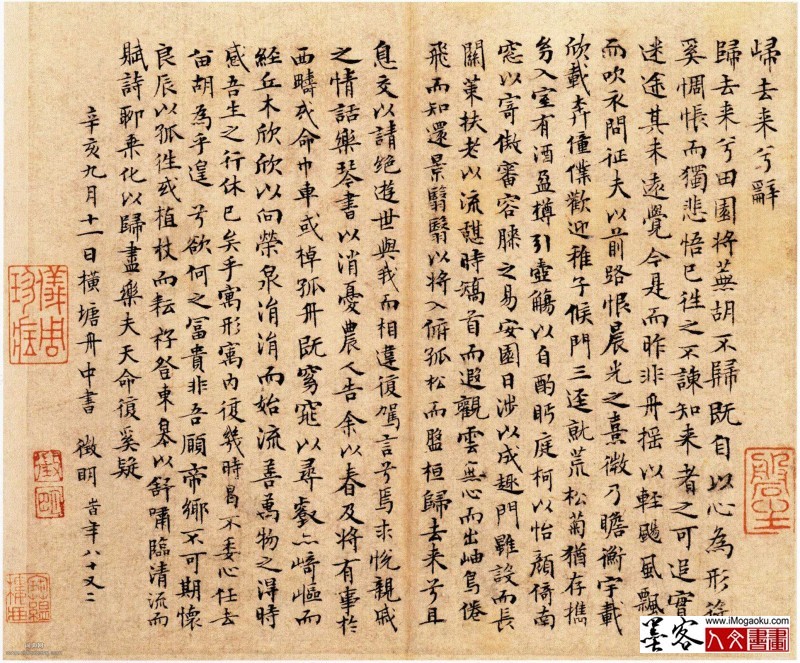 歸去来兮辭
歸去来兮田園將蕪胡不歸既自以心為形役
奚惆悵而獨悲悟已往之不諫知来者之可追寔
迷途其未遠覺今是而昨非舟摇以輕颺風飄
而吹衣問征夫以前路恨晨光之熹微乃瞻衡宇載
欣載奔僮僕歡迎稚子候門三逕就荒松菊猶存攜
幼入室有酒盈樽引壺觴以自酌眄庭柯以怡顔倚南
窓以寄傲審容膝之易安園日涉以成趣門雖設而長
關策扶老以流憩時矯首而遐觀雲無心而出岫鳥倦
飛而知還景翳翳以將入撫孤松而盤桓歸去来兮且
息交以請絶遊世與我而相違復駕言兮焉求悦親戚
之情話樂琴書以消憂農人告余以春及將有事於
西疇或命巾車或棹孤舟既窈窕以尋壑亦崎嶇而
經丘木欣欣以向榮泉涓涓而始流善萬物之得時
感吾生之行休已矣乎寓形寓內復幾時曷不委心任去
留胡為乎遑兮欲何之冨貴非吾願帝鄉不可期懷
良辰以孤往或植杖而耘耔登東皋以舒嘯臨清流而
賦詩聊乘化以歸盡樂夫天命復奚疑
辛亥九月十一日橫塘舟中書 徵明 旹年八十又二
徵
明
墨客
www.iMogaoku.com
人文書畫